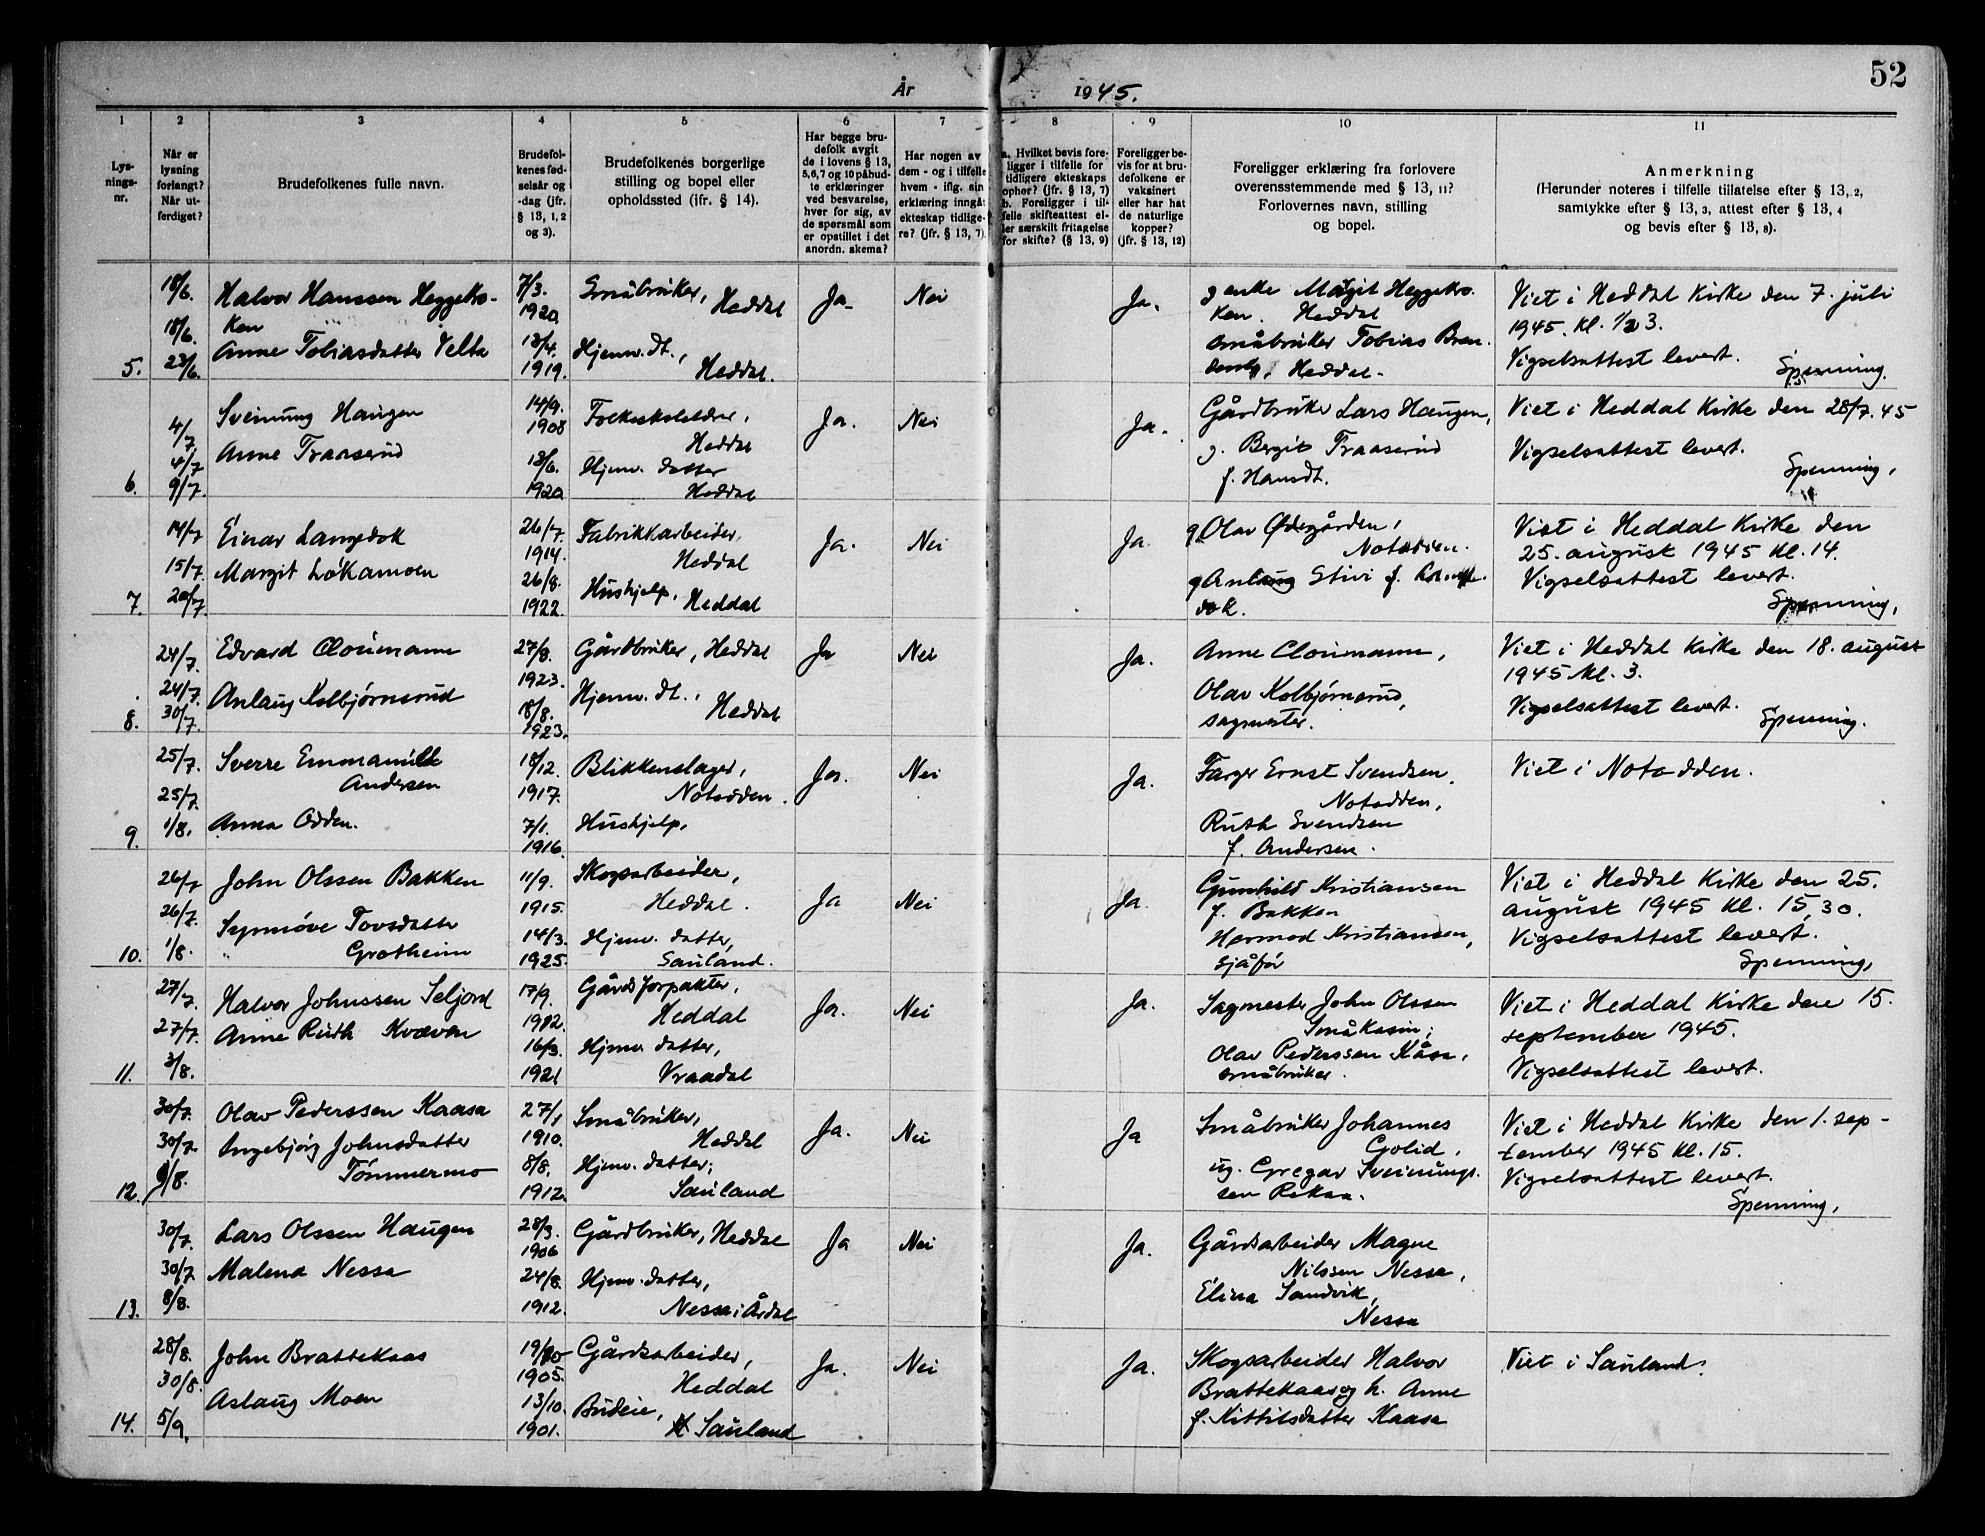 52
År 1945.
1
Lys-
nings-
nr.
2
Når er
lysning
forlangt?
Når ut-
ferdiget?
3
Brudefolkenes fulle navn.
4
Brudefol-
kenes fød-
selsår og
-dag (jfr.
§ 13, 1, 2
og 3).
5
Brudefolkenes borgerlige
stilling og bopel eller
opholdssted (jfr. § 14).
6
Har begge bru-
defolk avgit
de i lovens § 13,
5,6,7 og 10 påbud-
te erklæringer
ved besvarelse,
hver for sig, av
de spørsmål som
er opstillet i det
anordn. skema?
7
Har nogen av
dem - og i tilfelle
hvem - iflg. sin
erklæring inngåt
ekteskap tidlige-
re? (jfr. § 13, 7).
8
a. Hvilket bevis fore-
ligger i tilfelle for
tidligere ekteskaps
ophør? (jfr. § 13, 7)
b. Foreligger i til-
felle skifteattest el-
ler særskilt fritagelse
for skifte? (§ 13, 9)
9
Foreligger be-
vis for at bru-
defolkene er
vaksinert
eller har hat
de naturlige
kopper?
(jfr. § 13, 12)
10
Foreligger erklæring fra forlovere
overensstemmende med § 13, 11?
Forlovernes navn, stilling
og bopel.
11
Anmerkning
(Herunder noteres i tilfelle tillatelse efter § 13, 2,
samtykke efter § 13, 3, attest efter § 13, 4
og bevis efter § 13, 8).
5.
18/6.
18/6.
23/6.
Halvor Hanssen Heggeko-
ken
Anne Tobiasdatter Velta
7/3.
1920
13/4.
1919.
Småbruker,
Heddal
Hjemv. dt.,
Heddal.
Ja
Nei
Ja.
enke Margit Heggeko-
ken. Heddal
småbruker Tobias
Heddal.
Viet i Heddal Kirke den 7. juli
1945. kl. 1/2 3.
Vigselsattest levert.
Spenning.
6.
4/7
4/7
9/7.
Sveinung Haugen
Anne Traaserud
14/9.
1908
13/6.
1920
Folkeskolelærer,
Heddal
Hjemv. datter
Heddal
Ja.
Nei
Ja.
Gårdbruker Lars Haugen,
g. Bergit Traaserud
f. Hamdt.
Viet i Heddal Kirke den 28/7. 45
Vigselsattest levert.
Spenning,
7.
14/7
15/7.
20/7.
Einar Langedok
Margit Løkamoen
26/7.
1914.
26/8.
1922.
Fabrikkarbeider,
Heddal
Hushjelp, Heddal
Ja.
Nei
Ja
g. Olav Ødegården,
Notodden.
g. Anlaug Stivi f.
dok.
Viet i Heddal Kirke den
25. august 1945 kl. 14.
Vigselsattest levert.
Spenning,
8.
24/7.
24/7.
30/7.
Edvard Cloumann
Anlaug Kolbjørnsrud
27/8.
1923.
18/8.
1923.
Gårdbruker, Heddal
Hjemv. dt.,
Heddal
Ja
Nei
Ja.
Anne Cloumann,
Olav Kolbjørnsrud,
sagmester.
Viet i Heddal Kirke den 18. august
1945 kl. 3.
Vigselsattest levert.
Spenning.
9.
25/7.
25/7.
1/8.
Sverre Emmanuel
Andersen
Anna Odden.
18/12.
1917.
7/1.
1916.
Blikkenslager,
Notodden.
Hushjelp.
Ja.
Nei
Ja.
Farger Ernst Svendsen
Notodden,
Ruth Svendsen
f. Andersen.
Viet i Notodden.
10.
26/7
26/7.
1/8.
John Olssen Bakken
Synnøve Tovsdatter
Grotheim
11/9.
1915.
14/3.
1925.
Skogsarbeider,
Heddal.
Hjemv. datter,
Sauland.
Ja
Nei
Ja.
Gunhild Kristiansen
f. Bakken
Hermod Kristiansen,
sjåfør
Viet i Heddal Kirke den 25.
august 1945 kl. 15,30.
Vigselsattest levert.
Spenning,
11.
27/7.
27/7.
3/8.
Halvor Johnssen Seljord
Anne Ruth Kvæven
17/9.
1912.
16/3.
1921
Gårdsforpakter,
Heddal
Hjemv. datter,
Vraadal
Ja.
Nei
Ja.
Sagmester John Olssen
Småkasin,
Olav Pederssen Kåsa,
småbruker.
Viet i Heddal Kirke den 15.
september 1945.
Vigselsattest levert.
12.
30/7.
30/7.
9/8.
Olav Pederssen Kaasa
Ingebjørg Johnsdatter
Tømmermo
27/1
1910.
8/8.
1912.
Småbruker,
Heddal
Hjemv. datter,
Sauland
Ja.
Nei
Ja
Småbruker Johannes
Golid,
ug. Gregar Sveinungs-
sen Reksa.
Viet i Heddal Kirke den 1. sep-
tember 1945 kl. 15.
Vigselsattest levert.
Spenning,
13.
30/7.
30/7
8/8.
Lars Olssen Haugen
Malena Nessa
28/3.
1906
24/8.
1912.
Gårdbruker, Heddal
Hjemv. datter,
Nessa i Årdal
Ja
Nei
Ja.
Gårdsarbeider Magne
Nilssen Nessa,
Elina Sandvik,
Nessa
14.
28/8.
30/8.
5/9.
John Brattekaas
Aslaug Moen
19/10
1905.
13/10.
1901.
Gårdsarbeider,
Heddal
Budeie,
Sauland
Ja.
Nei
Ja.
Skogsarbeider Halvor
Brattekaas og h. Anne
f. Kittilsdatter Kaasa
Viet i Sauland.